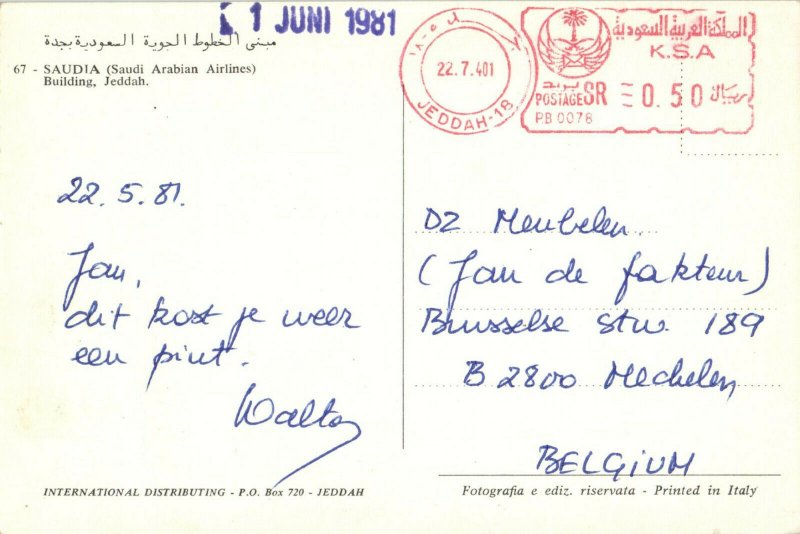 1 JUNI 1981
مبنى الخطوط الجوية السعودية بجدة
67 - SAUDIA (Saudi Arabian Airlines)
Building, Jeddah.
22.7.401
JEDDAH-18
المملكة العربية السعودية
K.S.A
بريد
POSTAGE SR 0.50 ريال
P.B 0078
22.5.81.
Jan,
dit kost je weer
een pint.
Walter
DZ Meubelen.
(Jan de fakteur)
Brusselse Stw. 189
B 2800 Mechelen
BELGIUM
INTERNATIONAL DISTRIBUTING - P.O. Box 720 - JEDDAH
Fotografia e ediz. riservata - Printed in Italy